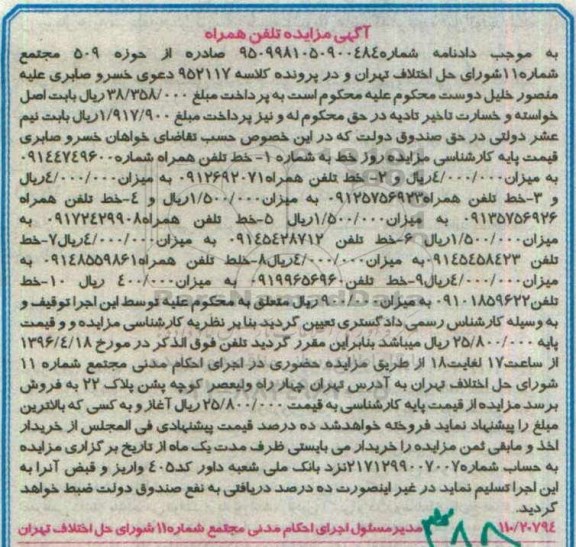 آگهی مزایده تلفن همراه
به موجب دادنامه شماره ۹۵۰۹۹۸۱۰۵۰۹۰۰۴۸۴ صادره از حوزه ۵۰۹ مجتمع
شماره ۱۱ شورای حل اختلاف تهران و در پرونده کلاسه ۹۵۲۱۱۷ دعوی خسرو صابری علیه
منصور خلیل دوست محکوم علیه محکوم است به پرداخت مبلغ ۳۸/۳۵۸/۰۰۰ ریال بابت اصل
خواسته و خسارت تاخیر تادیه در حق محکوم له و نیز پرداخت مبلغ ۱/۹۱۷/۹۰۰ ریال بابت نیم
عشر دولتی در حق صندوق دولت که در این خصوص حسب تقاضای خواهان خسرو صابری
قیمت پایه کارشناسی مزایده روز خط به شماره ۱- خط تلفن همراه شماره ۰۹۱۴۴۷۴۹۶۰۰
به میزان ۴/۰۰۰/۰۰۰ ریال و ۲- خط تلفن همراه ۰۹۱۲۶۹۲۰۷۱ به میزان ۴/۰۰۰/۰۰۰ ریال
و ۳-خط تلفن همراه ۰۹۱۲۵۷۵۶۹۲۳ به میزان ۱/۵۰۰/۰۰۰ ریال و ۴-خط تلفن همراه
۰۹۱۳۵۷۵۶۹۲۶ به میزان ۱/۵۰۰/۰۰۰ ریال ۵-خط تلفن همراه ۰۹۱۷۲۴۲۹۹۰۸ به
میزان ۱/۵۰۰/۰۰۰ ریال ۶-خط تلفن ۰۹۱۴۵۴۲۸۷۱۲ به میزان ۴/۰۰۰/۰۰۰ ریال ۷-خط
تلفن ۰۹۱۴۵۴۵۸۴۲۳ به میزان ۴/۰۰۰/۰۰۰ ریال ۸-خلط تلفن همراه ۰۹۱۴۸۵۵۹۸۶۱ به
میزان ۴/۰۰۰/۰۰۰ ریال ۹-خط تلفن ۰۹۱۹۹۶۵۶۹۶۰ به میزان ۴۰۰/۰۰۰ ریال ۱۰-خط
تلفن ۰۹۱۰۱۸۵۹۶۲۲ به میزان ۹۰۰/۰۰۰ ریال متعلق به محکوم علیه توسط این اجرا توقیف و
به وسیله کارشناس رسمی دادگستری تعیین گردید بنا بر نظریه کارشناسی مزایده و و قیمت
پایه ۲۵/۸۰۰/۰۰۰ ریال میباشد بنابراین مقرر گردید تلفن فوق الذکر در مورخ ۱۳۹۶/۴/۱۸
از ساعت ۱۷ لغایت ۱۸ از طریق مزایده حضوری در اجرای احکام مدنی مجتمع شماره ۱۱
شورای حل اختلاف تهران به آدرس تهران چهار راه ولیعصر کوچه پشن پلاک ۲۲ به فروش
برسد مزایده از قیمت پایه کارشناسی به قیمت ۲۵/۸۰۰/۰۰۰ ریال آغاز و به کسی که بالاترین
مبلغ را پیشنهاد نماید فروخته خواهد شد ده درصد قیمت پیشنهادی فی المجلس از خریدار
اخذ و مابقی ثمن مزایده را خریدار می بایستی ظرف مدت یک ماه از تاریخ برگزاری مزایده
به حساب شماره ۲۱۷۱۲۹۹۰۰۷۰۰۷ نزد بانک ملی شعبه داور کد ۴۰۵ واریز و قبض آنرا به
این اجرا تسلیم نماید در غیر اینصورت ده درصد دریافتی به نفع صندوق دولت ضبط خواهد
گردید.
۱۱۰/۲۰۷۹۴ مدیر مسئول اجرای احکام مدنی مجتمع شماره ۱۱ شورای حل اختلاف تهران
۳۸۸